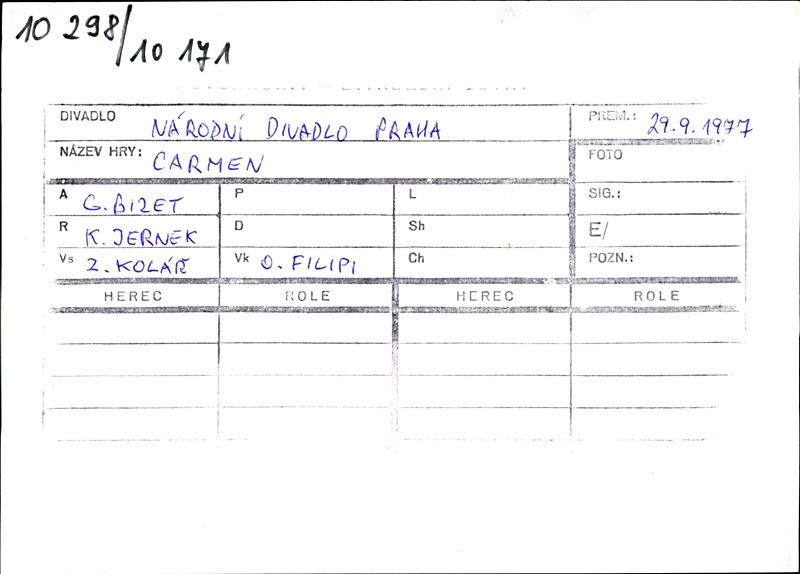 10 298/
10 171
DIVADLO NÁRODNÍ DIVADLO PRAHA PREM.: 29.9.1977
NÁZEV HRY: CARMEN FOTO
A G. BIZET P L SIG.:
R K. JERNEK D Sh E/
Vs Z. KOLÁŘ Vk O. FILIPI Ch POZN.:
HEREC ROLE HEREC ROLE